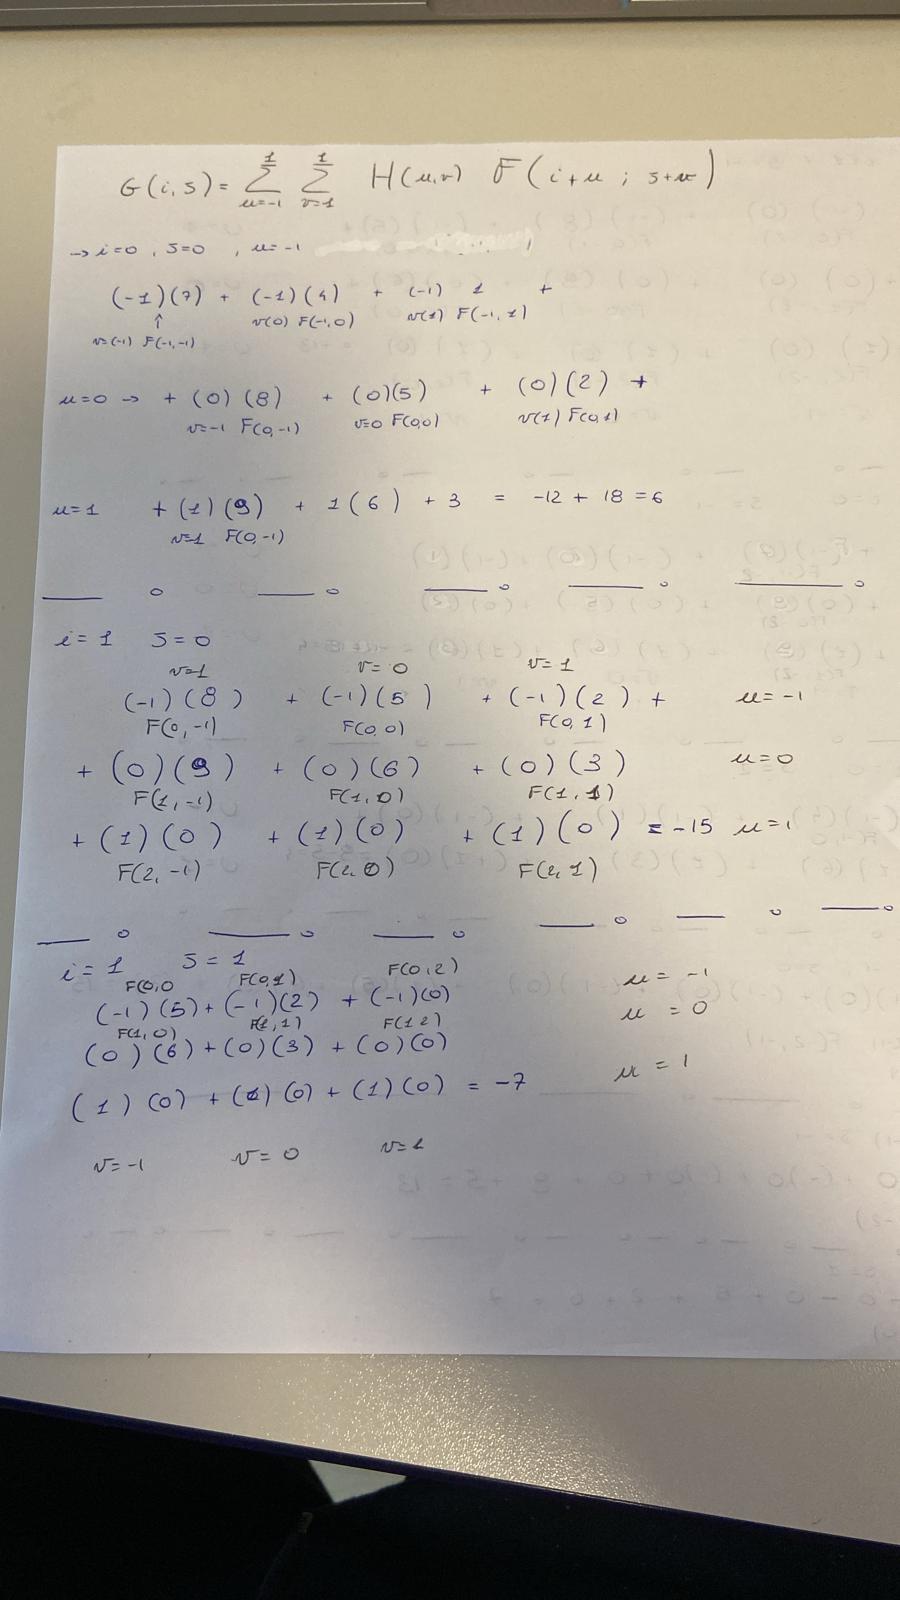 G(i,s) = Σ Σ H(u,v) F(i+u ; s+v)
1 1
u=-1 v=1
→ i=0, s=0, u=-1
(-1)(7) + (-1)(4) + (-1) 1 +
↑ v(0) F(-1,0) v(1) F(-1,1)
v=(-1) F(-1,-1)
u=0 → + (0)(8) + (0)(5) + (0)(2) +
v=-1 F(0,-1) v=0 F(0,0) v(1) F(0,1)
u=1 + (1)(9) + 1(6) + 3 = -12 + 18 = 6
v=1 F(0,-1)
i=1 s=0
v=1 v=0 v=1
(-1)(8) + (-1)(5) + (-1)(2) + u=-1
F(0,-1) F(0,0) F(0,1)
+ (0)(9) + (0)(6) + (0)(3) u=0
F(1,-1) F(1,0) F(1,1)
+ (1)(0) + (1)(0) + (1)(0) = -15 u=1
F(2,-1) F(2,0) F(2,1)
i=1 s=1
F(0,0 F(0,1) F(0,2) u=-1
(-1)(5) + (-1)(2) + (-1)(0)
F(1,0) F(1,1) F(1 2) u=0
(0)(6) + (0)(3) + (0)(0)
(1)(0) + (1)(0) + (1)(0) = -7 u=1
v=-1 v=0 v=1